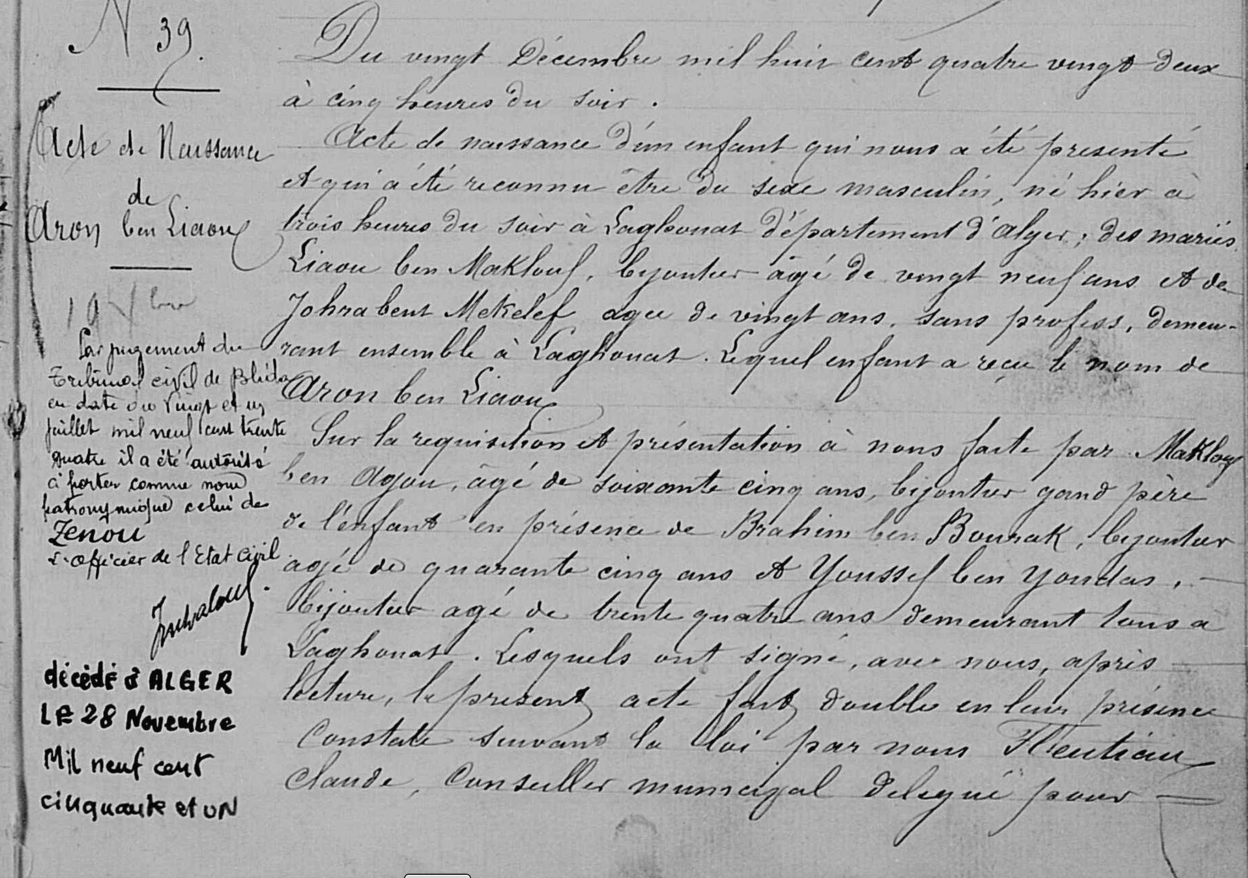 N 39.
Acte de Naissance
de
Aron ben Liaou
19 Xbre
Par jugement du
Tribunal civil de Blida
en date du Vingt et un
juillet mil neuf cent trente
quatre il a été autorisé
à porter comme nom
patronymique celui de
Zenou
L'officier de l'Etat Civil
décédé à ALGER
LE 28 Novembre
Mil neuf cent
cinquante et UN
Du vingt Décembre mil huit cent quatre vingt deux
à cinq heures du soir.
Acte de naissance d'un enfant qui nous a été présenté
et qui a été reconnu être du sexe masculin, né hier à
trois heures du soir à Laghouat département d'Alger; des mariés
Liaou ben Maklouf, bijoutier âgé de vingt neuf ans et de
Johra bent Mekelef agée de vingt ans, sans profess, demeu-
rant ensemble à Laghouat. Lequel enfant a reçu le nom de
Aron ben Liaou
Sur la requisition et présentation à nous faite par Maklouf
ben Ayou, âgé de soixante cinq ans, bijoutier gand père
de l'enfant en présence de Brahim ben Bourak, bijoutier
agé de quarante cinq ans et Youssef ben Youdas,
bijoutier agé de trente quatre ans demeurant tous a
Laghouat. Lesquels ont signé, avec nous, après
lecture, le présent acte fait double en leur présence
Constaté suivant la loi par nous
Claude, Conseiller municipal délégué pour